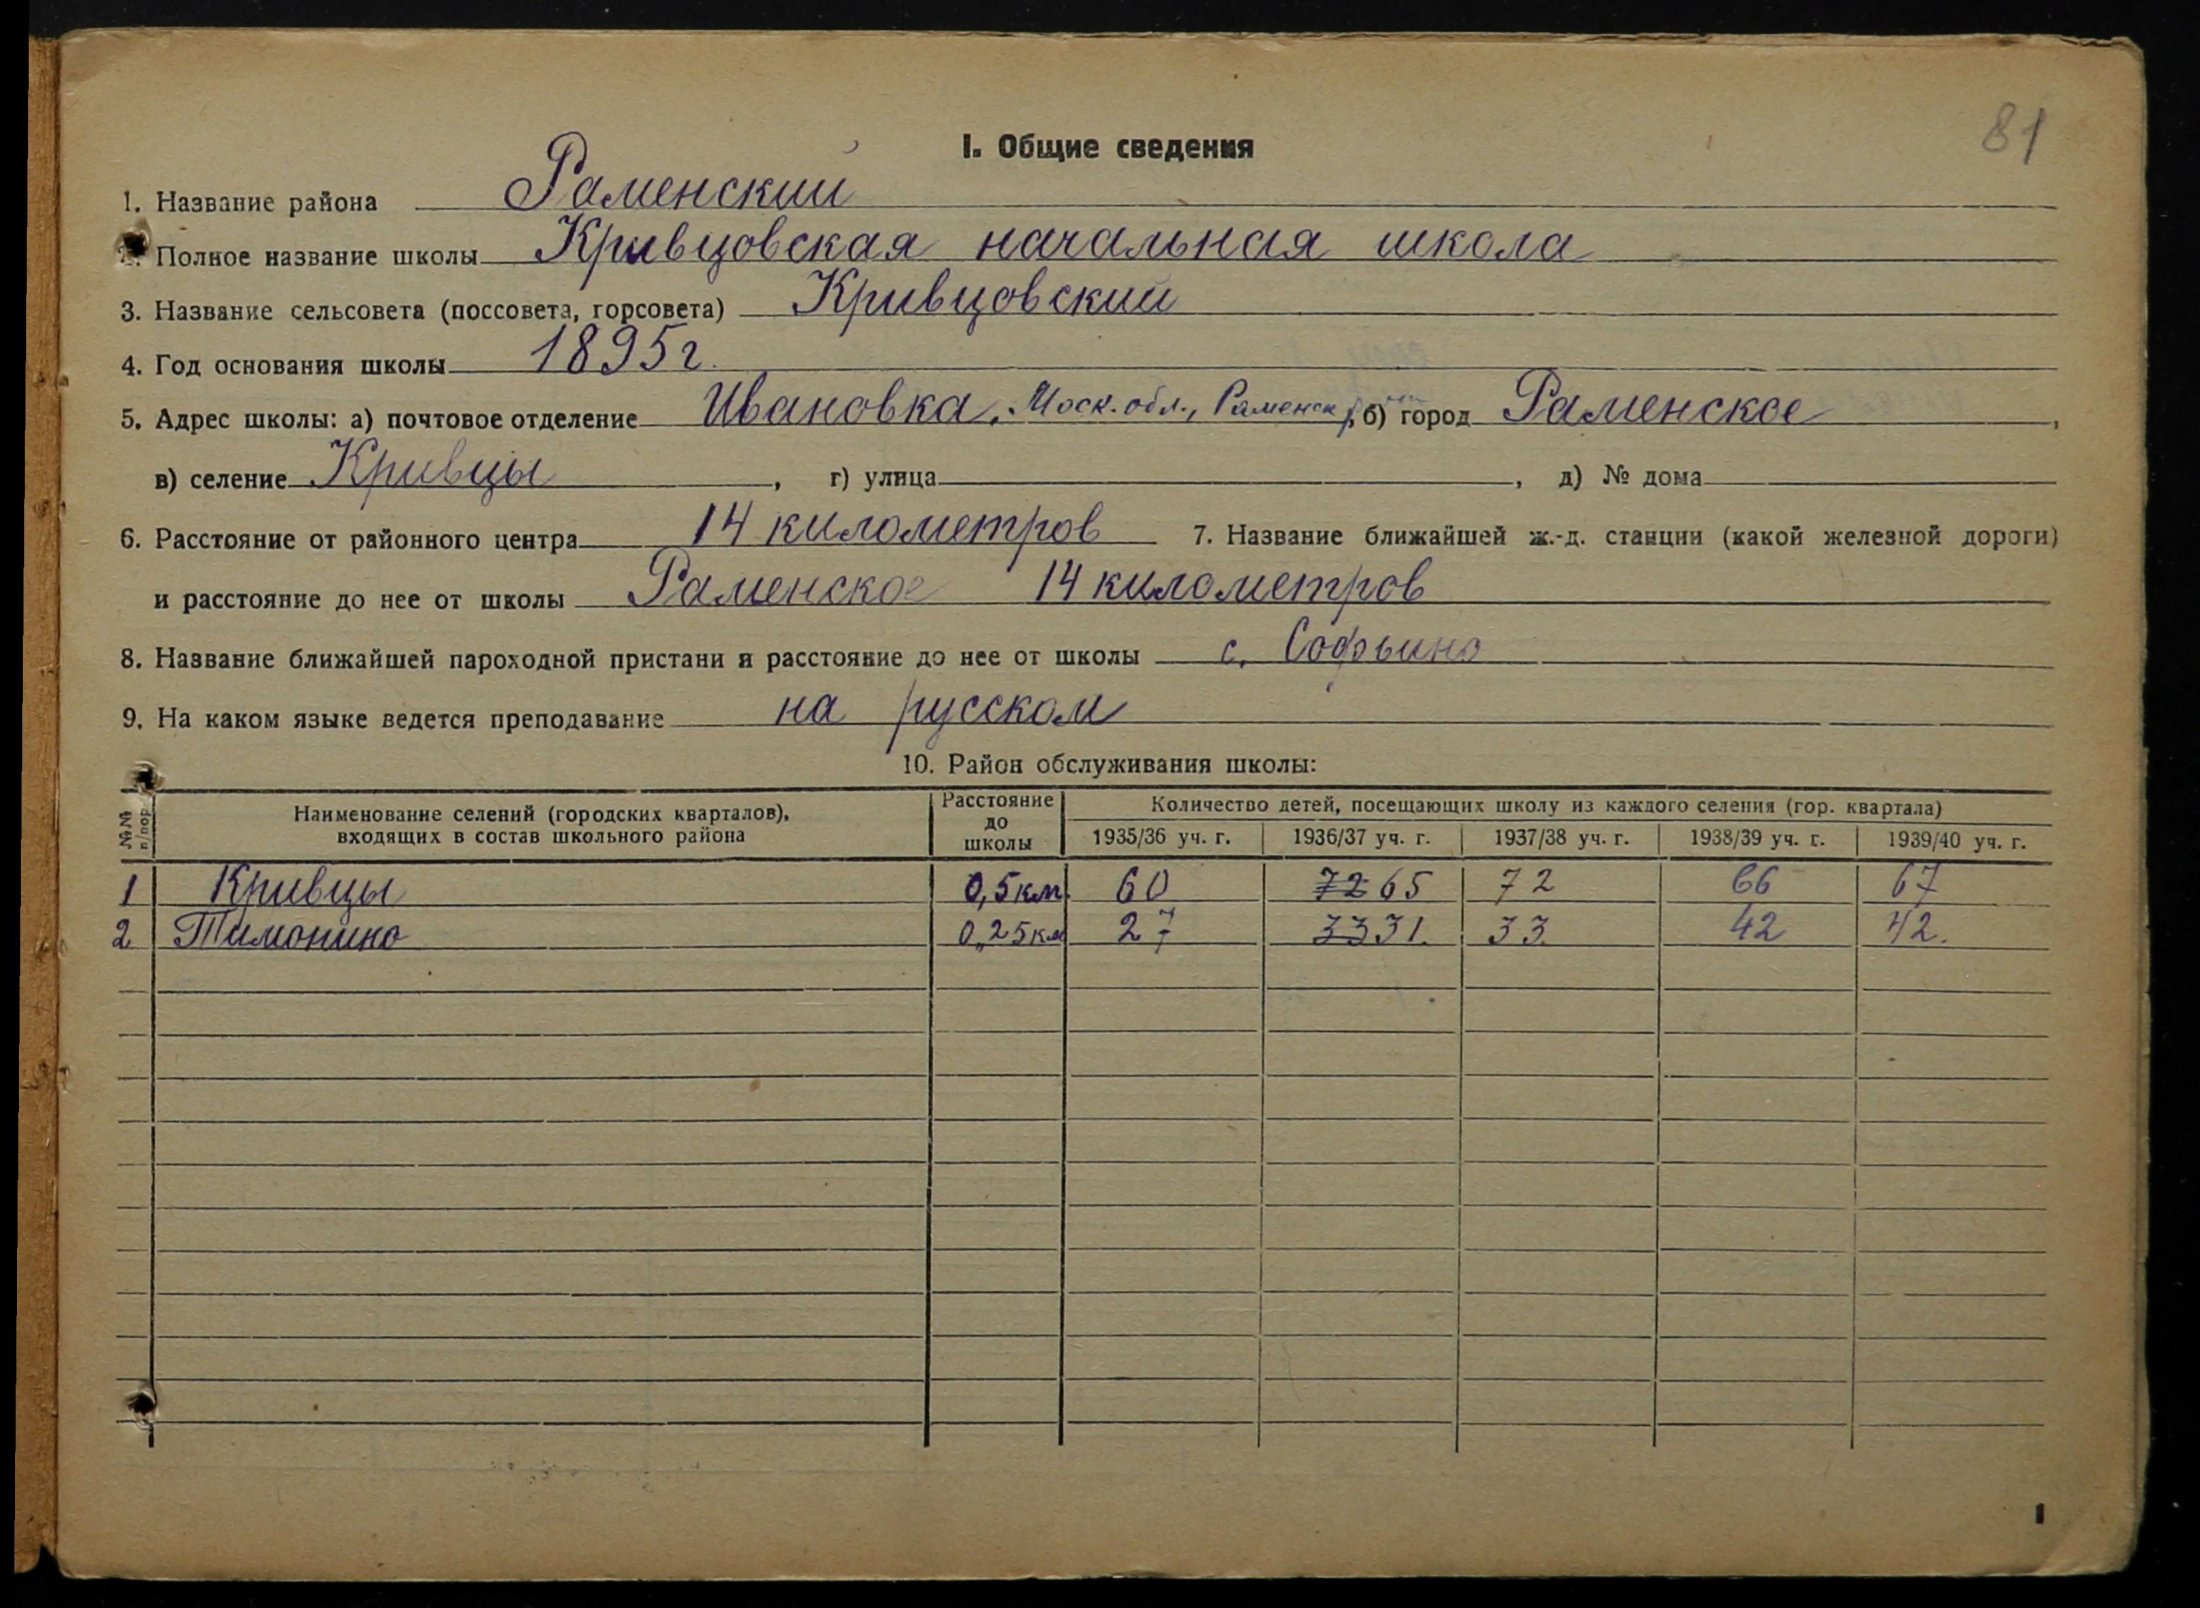 81
I. Общие сведения
1. Название района Раменский
2. Полное название школы Кривцовская начальная школа
3. Название сельсовета (поссовета, горсовета) Кривцовский
4. Год основания школы 1895 г.
5. Адрес школы: а) почтовое отделение Ивановка, Моск. обл., Раменск р, б) город Раменское,
в) селение Кривцы, г) улица , д) № дома
6. Расстояние от районного центра 14 километров 7. Название ближайшей ж.-д. станции (какой железной дороги)
и расстояние до нее от школы Раменское 14 километров
8. Название ближайшей пароходной пристани и расстояние до нее от школы с. Софьино
9. На каком языке ведется преподавание на русском
10. Район обслуживания школы:
№№ п/пор. Наименование селений (городских кварталов), входящих в состав школьного района Расстояние до школы Количество детей, посещающих школу из каждого селения (гор. квартала)
1935/36 уч. г. 1936/37 уч. г. 1937/38 уч. г. 1938/39 уч. г. 1939/40 уч. г.
1 Кривцы 0,5 км 60 72 65 72 66 67
2 Тимонино 0,25 км 27 33 31. 33. 42 42.
1